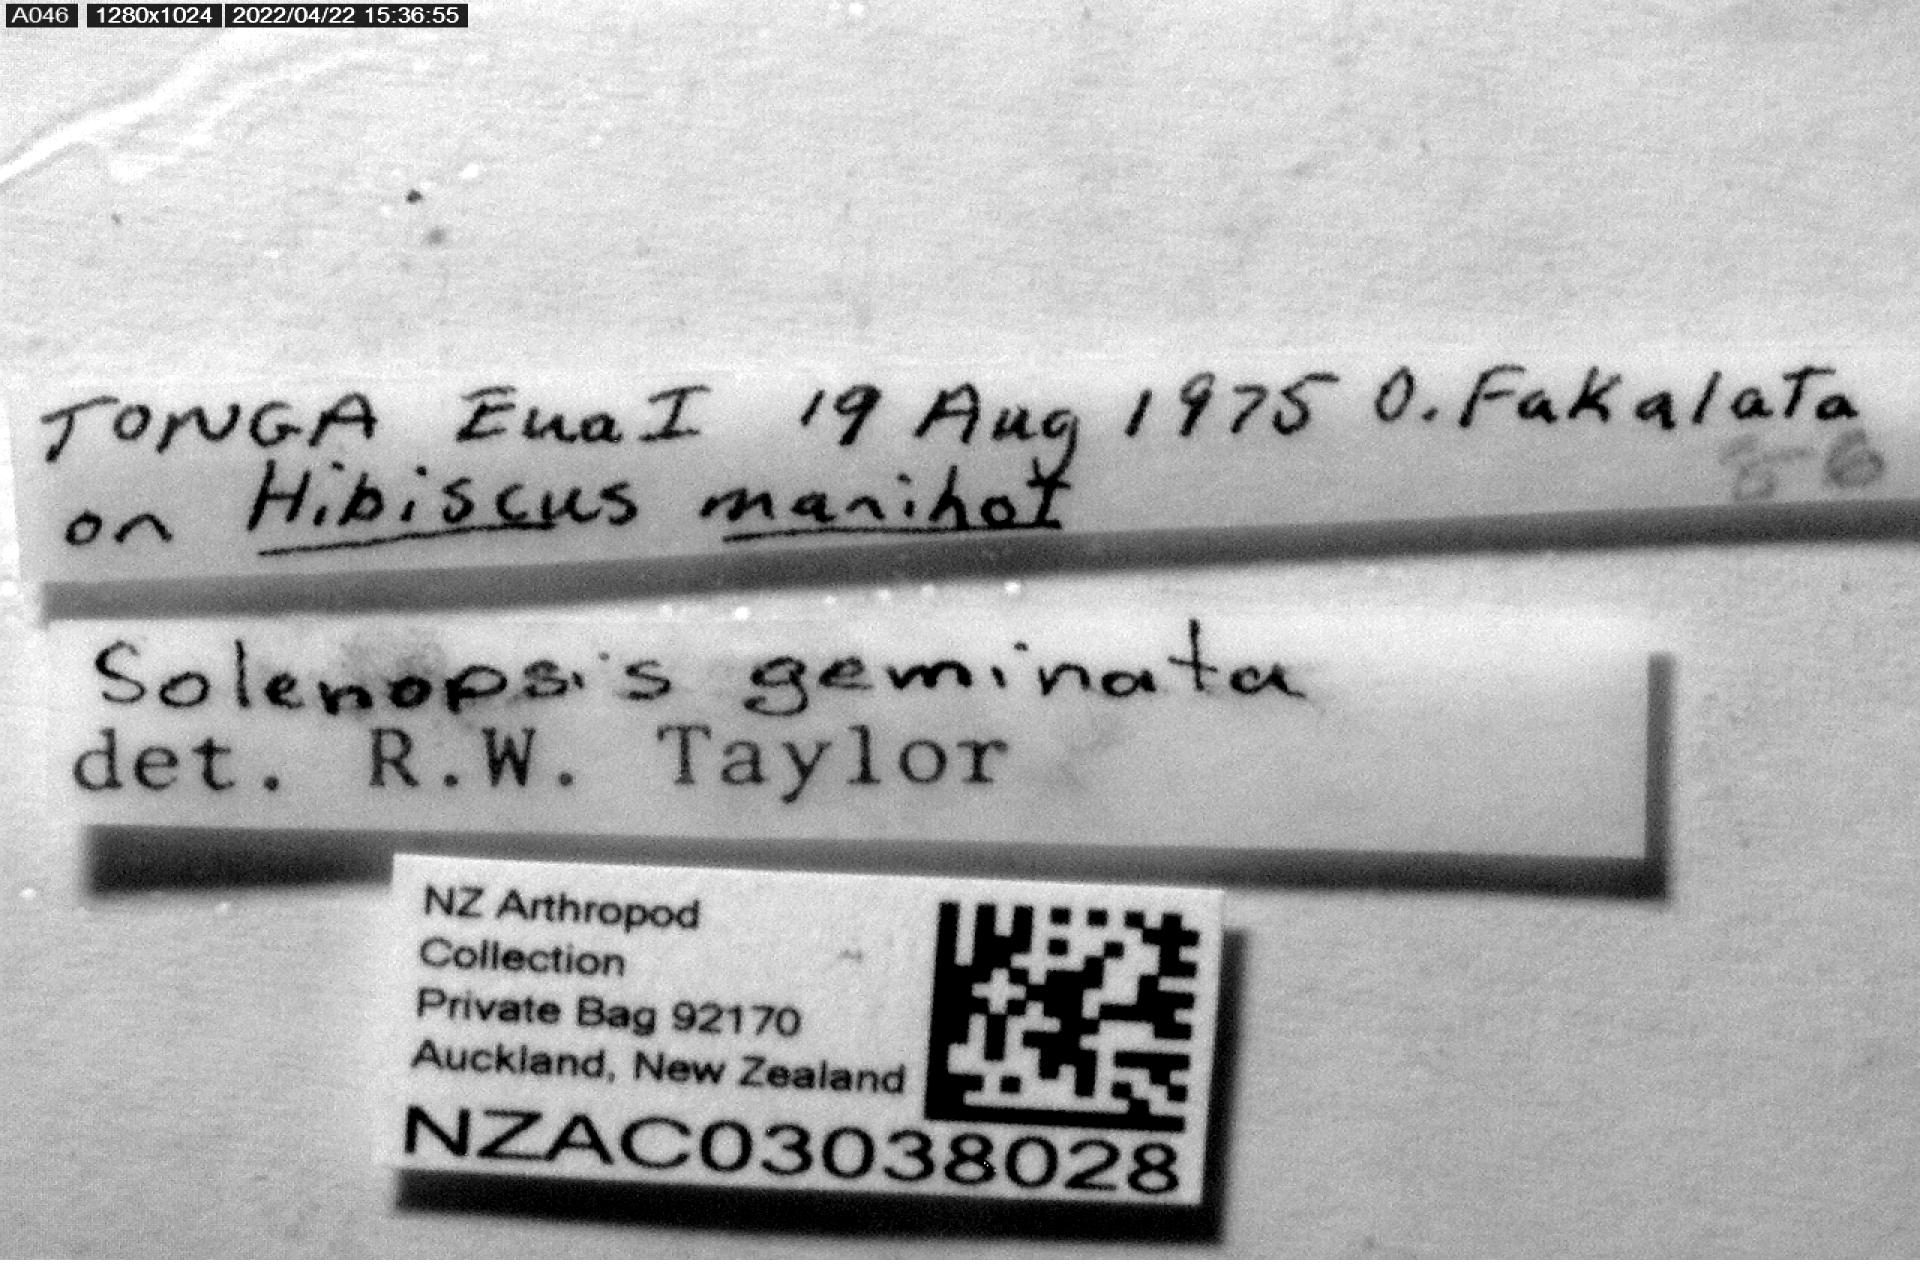 A046 1280x1024 2022/04/22 15:36:55
TONGA Eua I 19 Aug 1975 O. Fakalata
on Hibiscus manihot
Solenopsis geminata
det. R.W. Taylor
NZ Arthropod
Collection
Private Bag 92170
Auckland, New Zealand
NZAC03038028